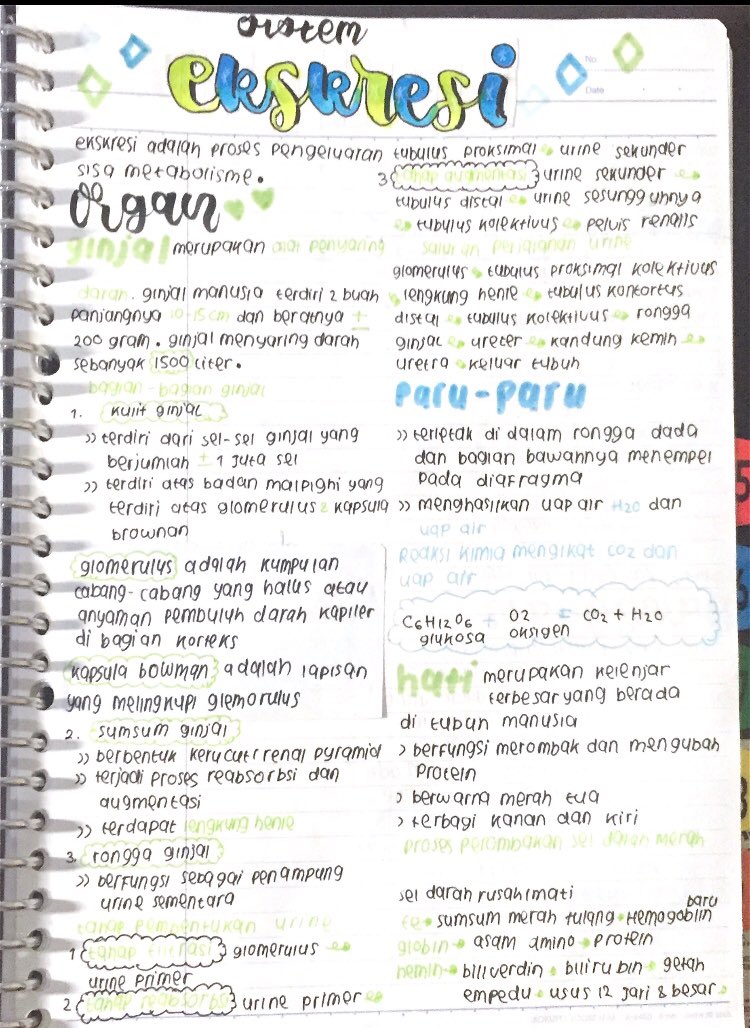 sistem
ekskresi
No
Date
ekskresi adalah proses pengeluaran
sisa metabolisme.
organ
ginjal merupakan alat penyaring
darah. ginjal manusia terdiri 2 buah
panjangnya 10-15 cm dan beratnya ±
200 gram. ginjal menyaring darah
sebanyak 1500 liter.
bagian-bagian ginjal
1. kulit ginjal
>> terdiri dari sel-sel ginjal yang
berjumlah ± 1 juta sel
>> terdiri atas badan malpighi yang
terdiri atas glomerulus & kapsula
brownan
glomerulus adalah kumpulan
cabang-cabang yang halus atau
anyaman pembuluh darah kapiler
di bagian korteks
kapsula bowman adalah lapisan
yang melingkupi glemorulus
2. sumsum ginjal
>> berbentuk kerucut/renal pyramid
>> terjadi proses reabsorbsi dan
augmentasi
>> terdapat lengkung henle
3. rongga ginjal
>> berfungsi sebagai penampung
urine sementara
tahap pembentukan urine
1 tahap filtrasi glomerulus →
urine primer
2 tahap reabsorbsi urine primer →
tubulus proksimal → urine sekunder
3 tahap augmentasi urine sekunder →
tubulus distal → urine sesungguhnya
→ tubulus kolektivus → pelvis renalis
saluran perjalanan urine
glomerulus → tubulus proksimal kolektivus
→ lengkung henle → tubulus kontortus
distal → tubulus kolektivus → rongga
ginjal → ureter → kandung kemih →
uretra → keluar tubuh
paru-paru
>> terletak di dalam rongga dada
dan bagian bawahnya menempel
pada diafragma
>> menghasilkan uap air H2O dan
uap air
Reaksi kimia mengikat CO2 dan
uap air
C6H12O6 + O2 = CO2 + H2O
glukosa oksigen
hati merupakan kelenjar
terbesar yang berada
di tubuh manusia
> berfungsi merombak dan mengubah
protein
> berwarna merah tua
> terbagi kanan dan kiri
proses perombakan sel darah merah
sel darah rusak/mati
baru
fe → sumsum merah tulang → Hemogoblin
globin → asam amino → protein
hemin → biliverdin → bilirubin → getah
empedu → usus 12 jari & besar →